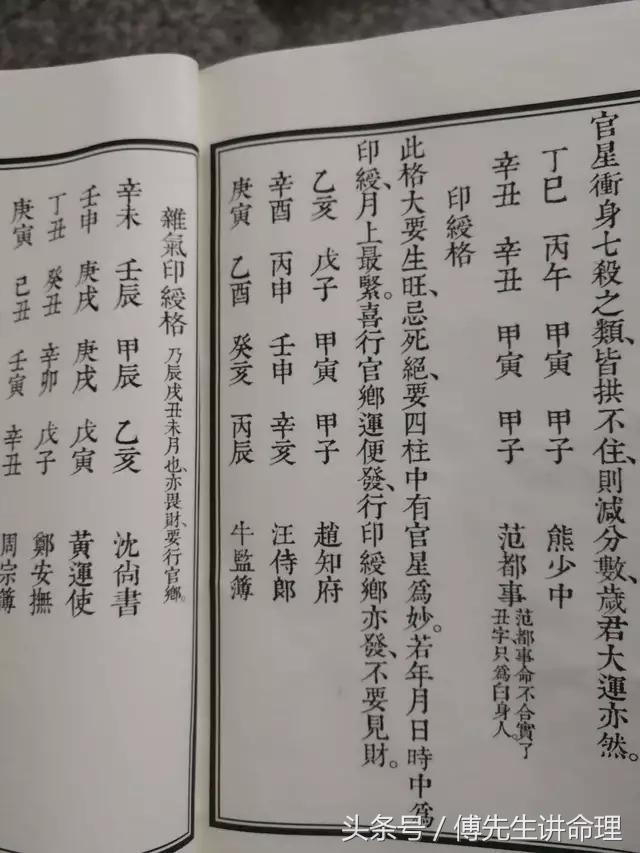 官星衝身七殺之類、皆拱不住、則減分數、歲君大運亦然。
丁巳 丙午 甲寅 甲子 熊少中
辛丑 辛丑 甲寅 甲子 范都事 范都事命不合實了丑字、只爲白身人。
印綬格
此格大要生旺、忌死絕、要四柱中有官星爲妙。若年月日時中爲
印綬、月上最緊。喜行官鄉運便發、行印綬鄉亦發、不要見財。
乙亥 戊子 甲寅 甲子 趙知府
辛酉 丙申 壬申 辛亥 汪侍郎
庚寅 乙酉 癸亥 丙辰 牛監簿
雜氣印綬格 乃辰戌丑未月也、亦畏財、要行官鄉。
辛未 壬辰 甲辰 乙亥 沈尙書
壬申 庚戌 庚戌 戊寅 黃運使
丁丑 癸丑 辛卯 戊子 鄭安撫
庚寅 己丑 壬寅 辛丑 周宗簿
头条号 / 傅先生讲命理